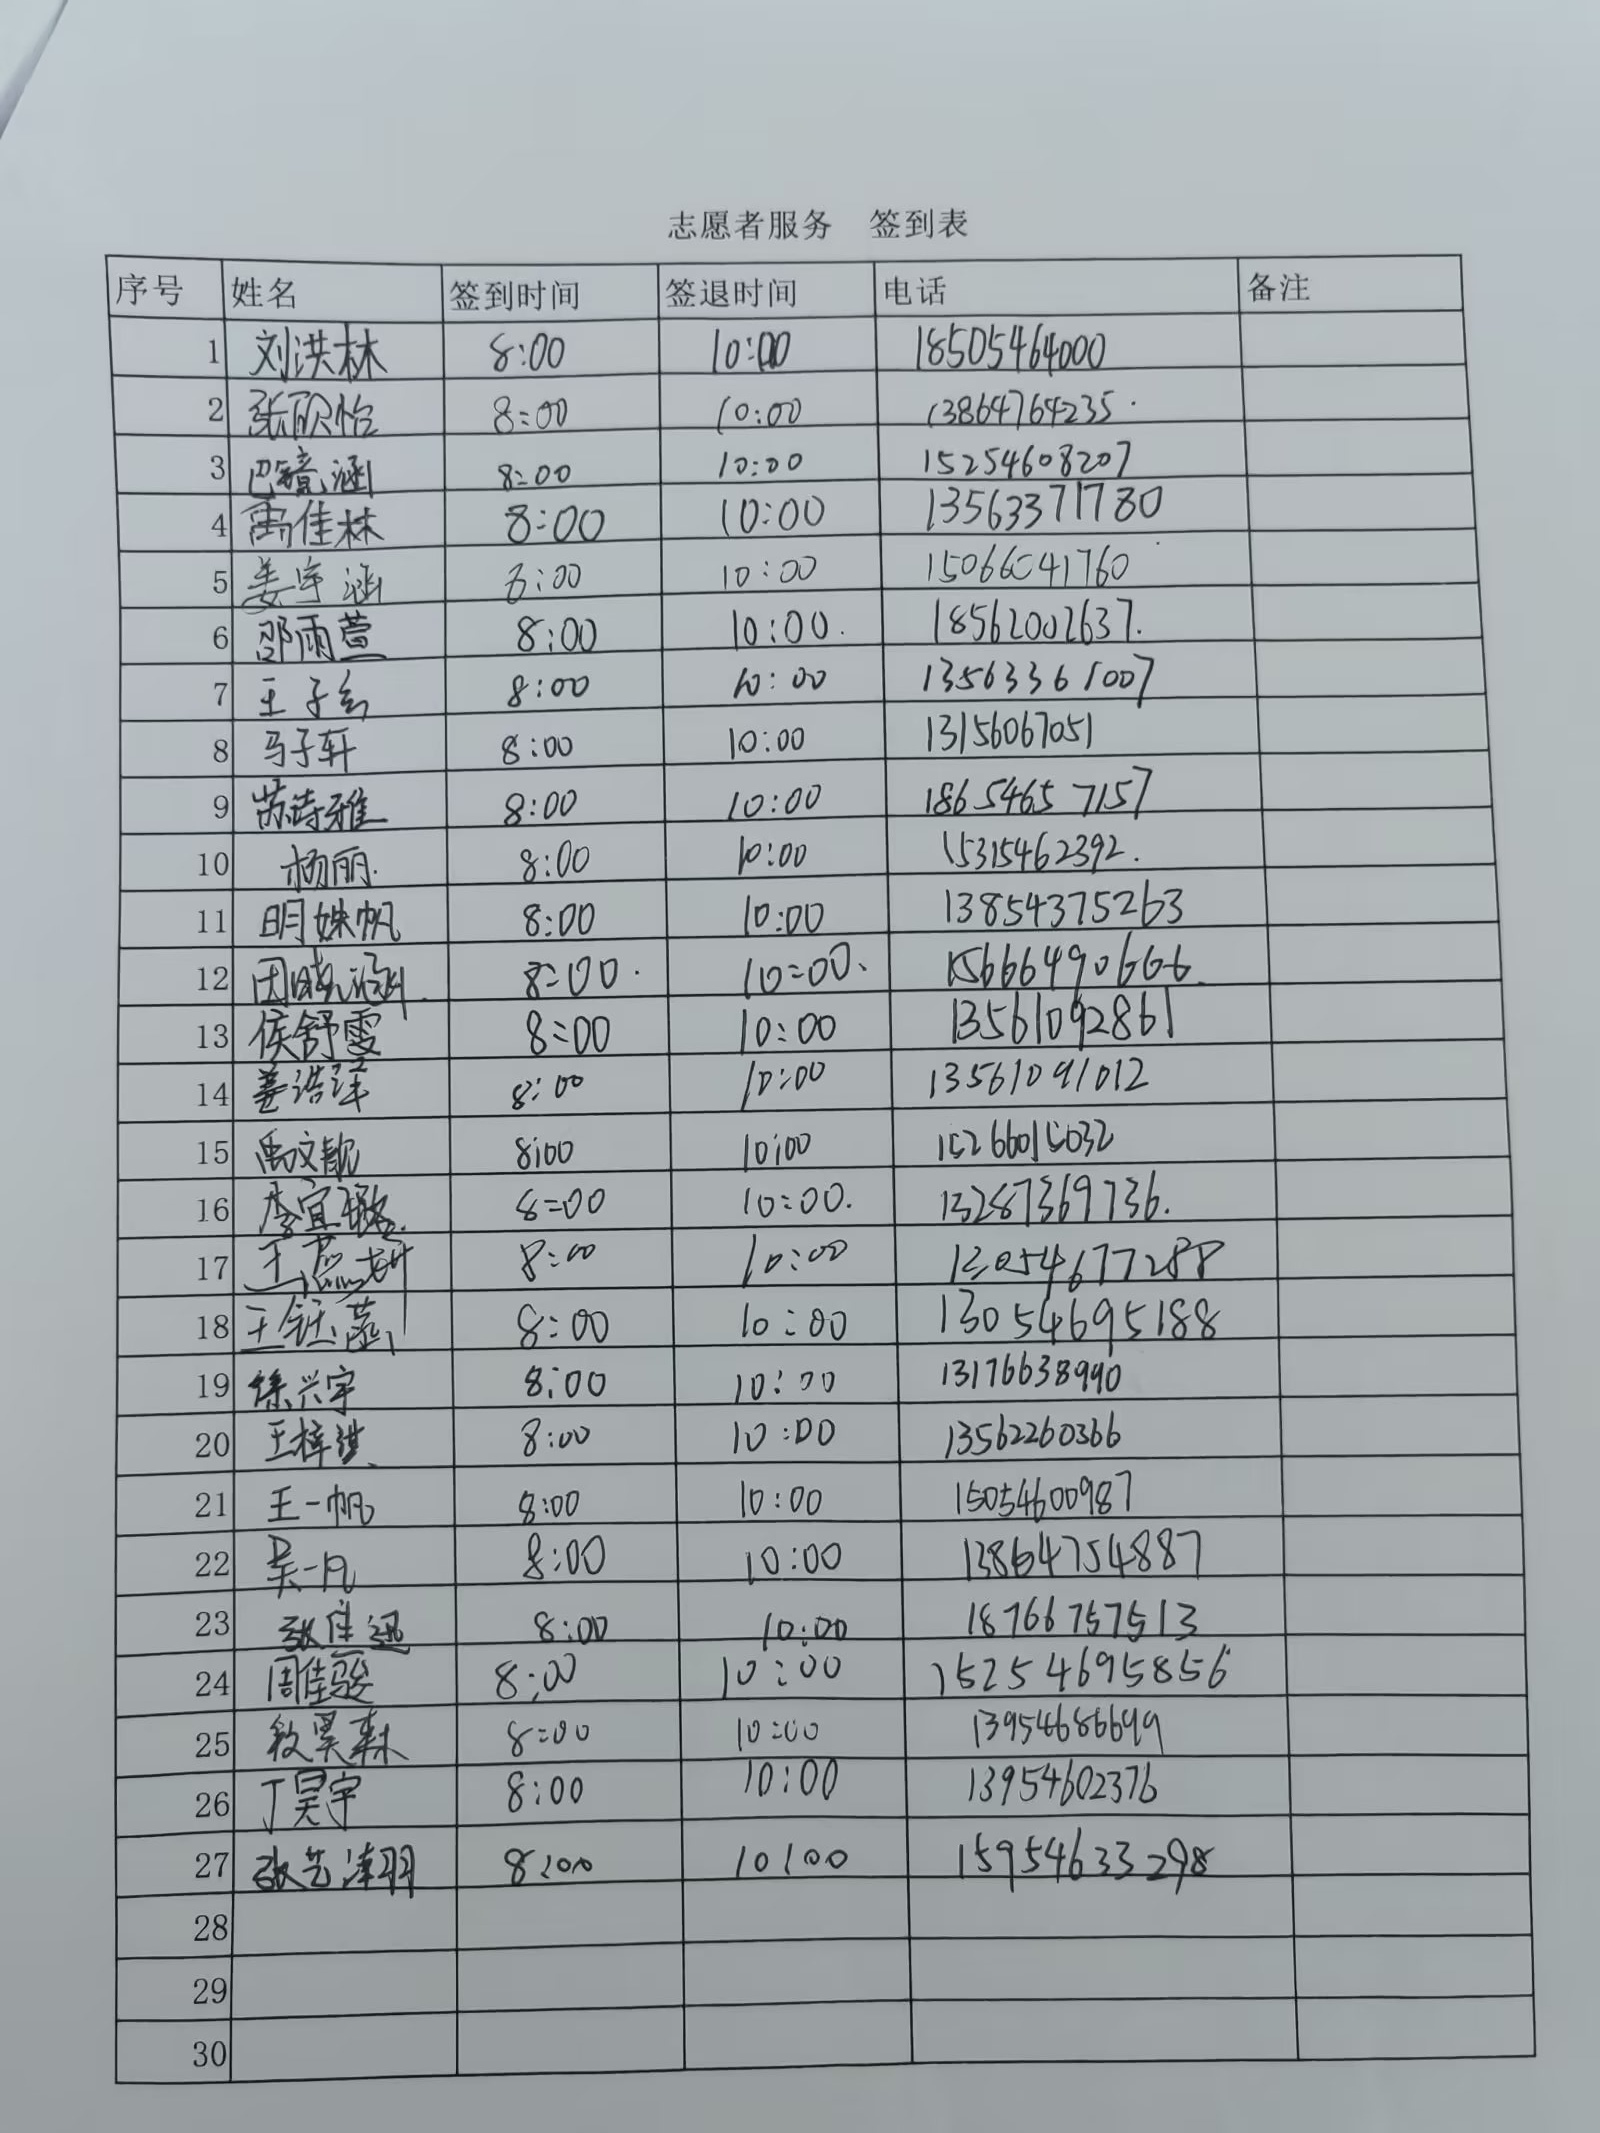 志愿者服务 签到表
序号 姓名 签到时间 签退时间 电话 备注
1 刘洪林 8:00 10:00 18505464000
2 张欣怡 8:00 10:00 13864764235
3 巴毓涵 8:00 10:00 15254608207
4 禹佳林 8:00 10:00 13563371780
5 姜宇涵 8:00 10:00 15066041760
6 邵雨萱 8:00 10:00 18562002637
7 王子幺 8:00 10:00 13563361007
8 马子轩 8:00 10:00 13156067051
9 苏诗雅 8:00 10:00 18654657157
10 杨丽 8:00 10:00 15315462392
11 明姝帆 8:00 10:00 13854375263
12 8:00 10:00 15666490666
13 侯舒雯 8:00 10:00 13561092861
14 姜浩洋 8:00 10:00 13561091012
15 禹文靓 8:00 10:00 15266015032
16 李宜璐 8:00 10:00 13287369736
17 8:00 10:00 13054677288
18 王钰菡 8:00 10:00 13054695188
19 徐兴宇 8:00 10:00 13176638990
20 王梓淇 8:00 10:00 13562260366
21 王一帆 8:00 10:00 15054600987
22 吴一凡 8:00 10:00 13864754887
23 张佳迅 8:00 10:00 18766757513
24 周佳骏 8:00 10:00 15254695856
25 8:00 10:00 13954686699
26 丁昊宇 8:00 10:00 13954602376
27 张艺洋羽 8:00 10:00 15954633298
28
29
30